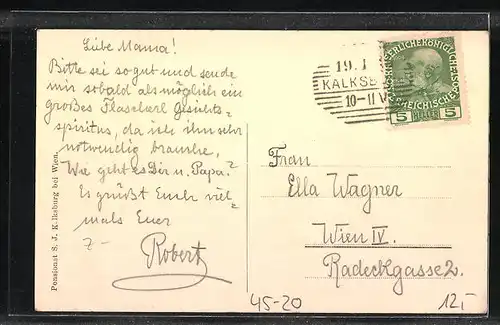 Liebe Mama!
Bitte sei so gut und sende
mir sobald als möglich ein
großes Flascherl Gesichts=
spiritus, da ich ihn sehr
notwendig brauche,
Wie geht es Dir u. Papa?
Es grüßt Euch viel=
mals Euer
Robert
Pensionat S. J. Kalksburg bei Wien.
19. I
KALKSB
10-11 V
KAISERLICHE KÖNIGLICHE ÖSTERREICHISCHE
5 HELLER 5
Frau
Ella Wagner
Wien IV.
Radeckgasse 2.
45-20
12,-